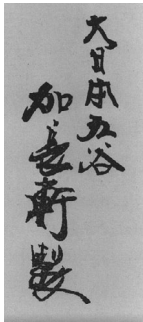 大日本五谷
加長軒製